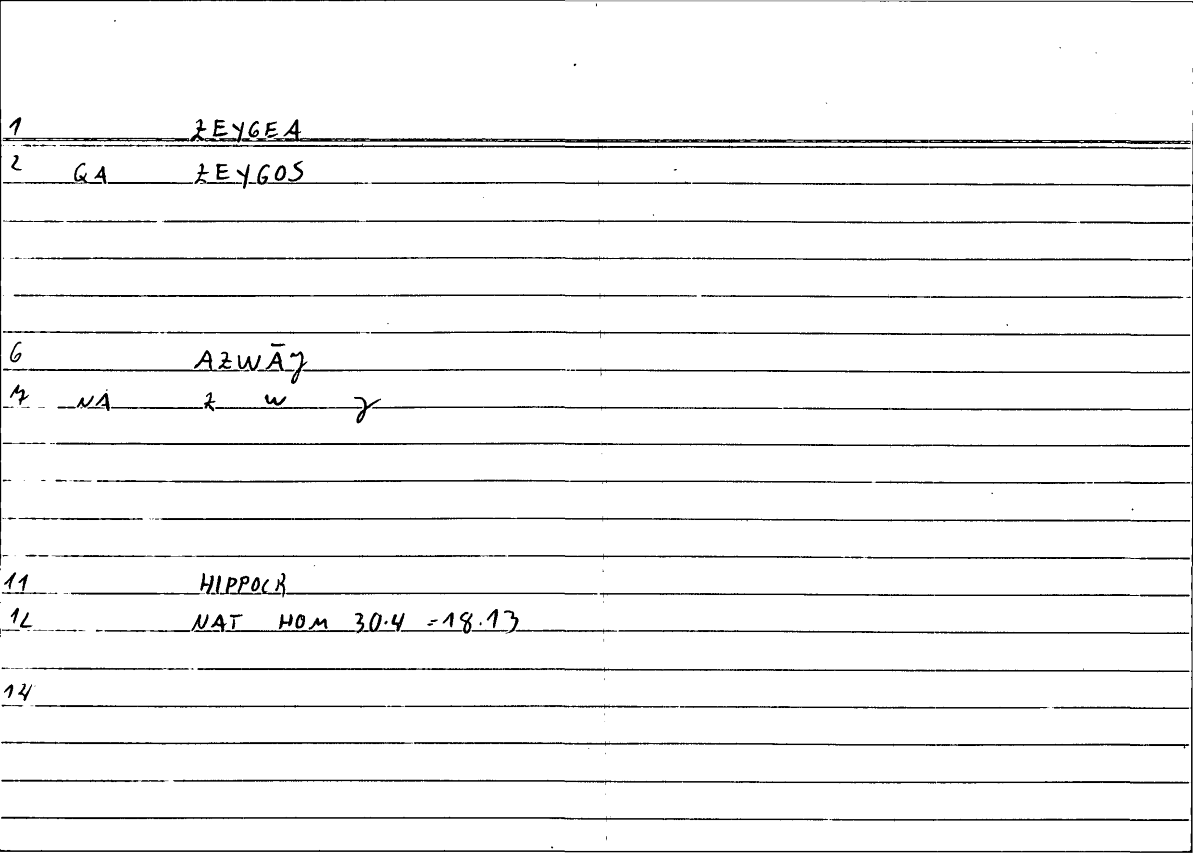 1 ZEYGEA
2 GA ZEYGOS
6 AZWĀJ
7 NA Z W J
11 HIPPOCR
12 NAT HOM 30.4 =18.13
14